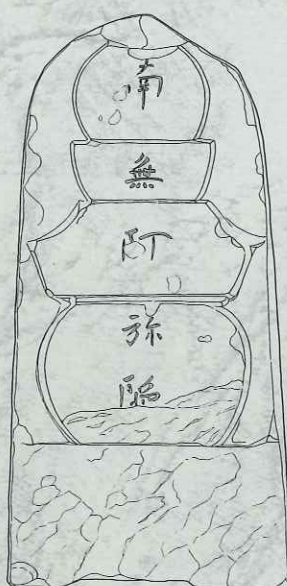 南
無
阿
弥
陀